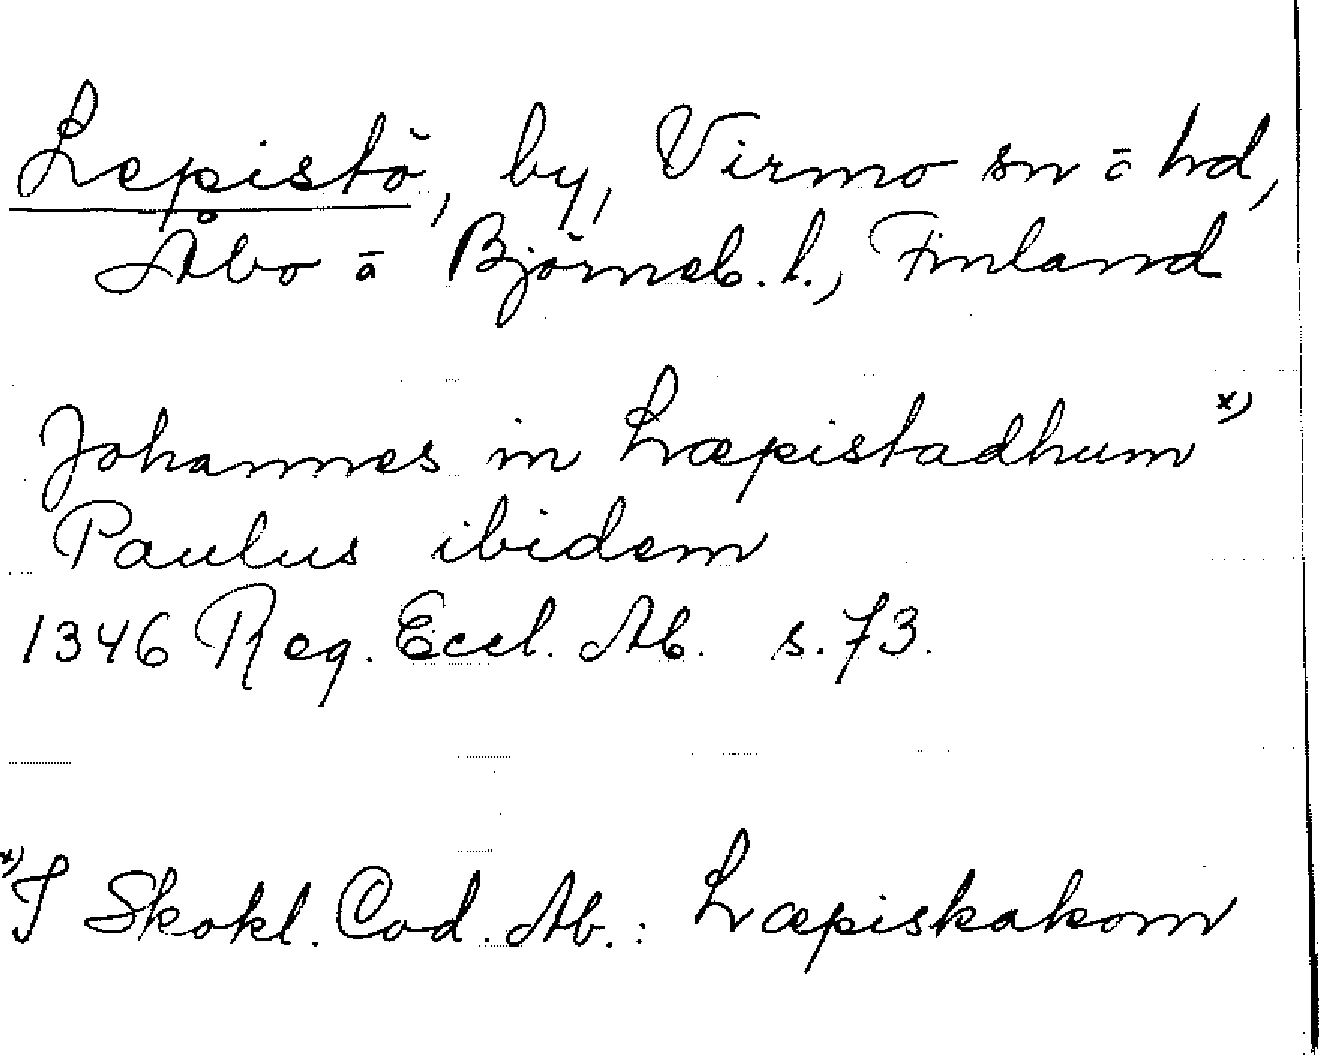 Lepistö, by, Virmo sn o hd,
Åbo o Björneb. l., Finland
Johannes in Læpistadhum x)
Paulus ibidem
1346 Reg. Eccl. Ab. s. 73.
x) I Skokl. Cod. Ab.: Læpiskakom